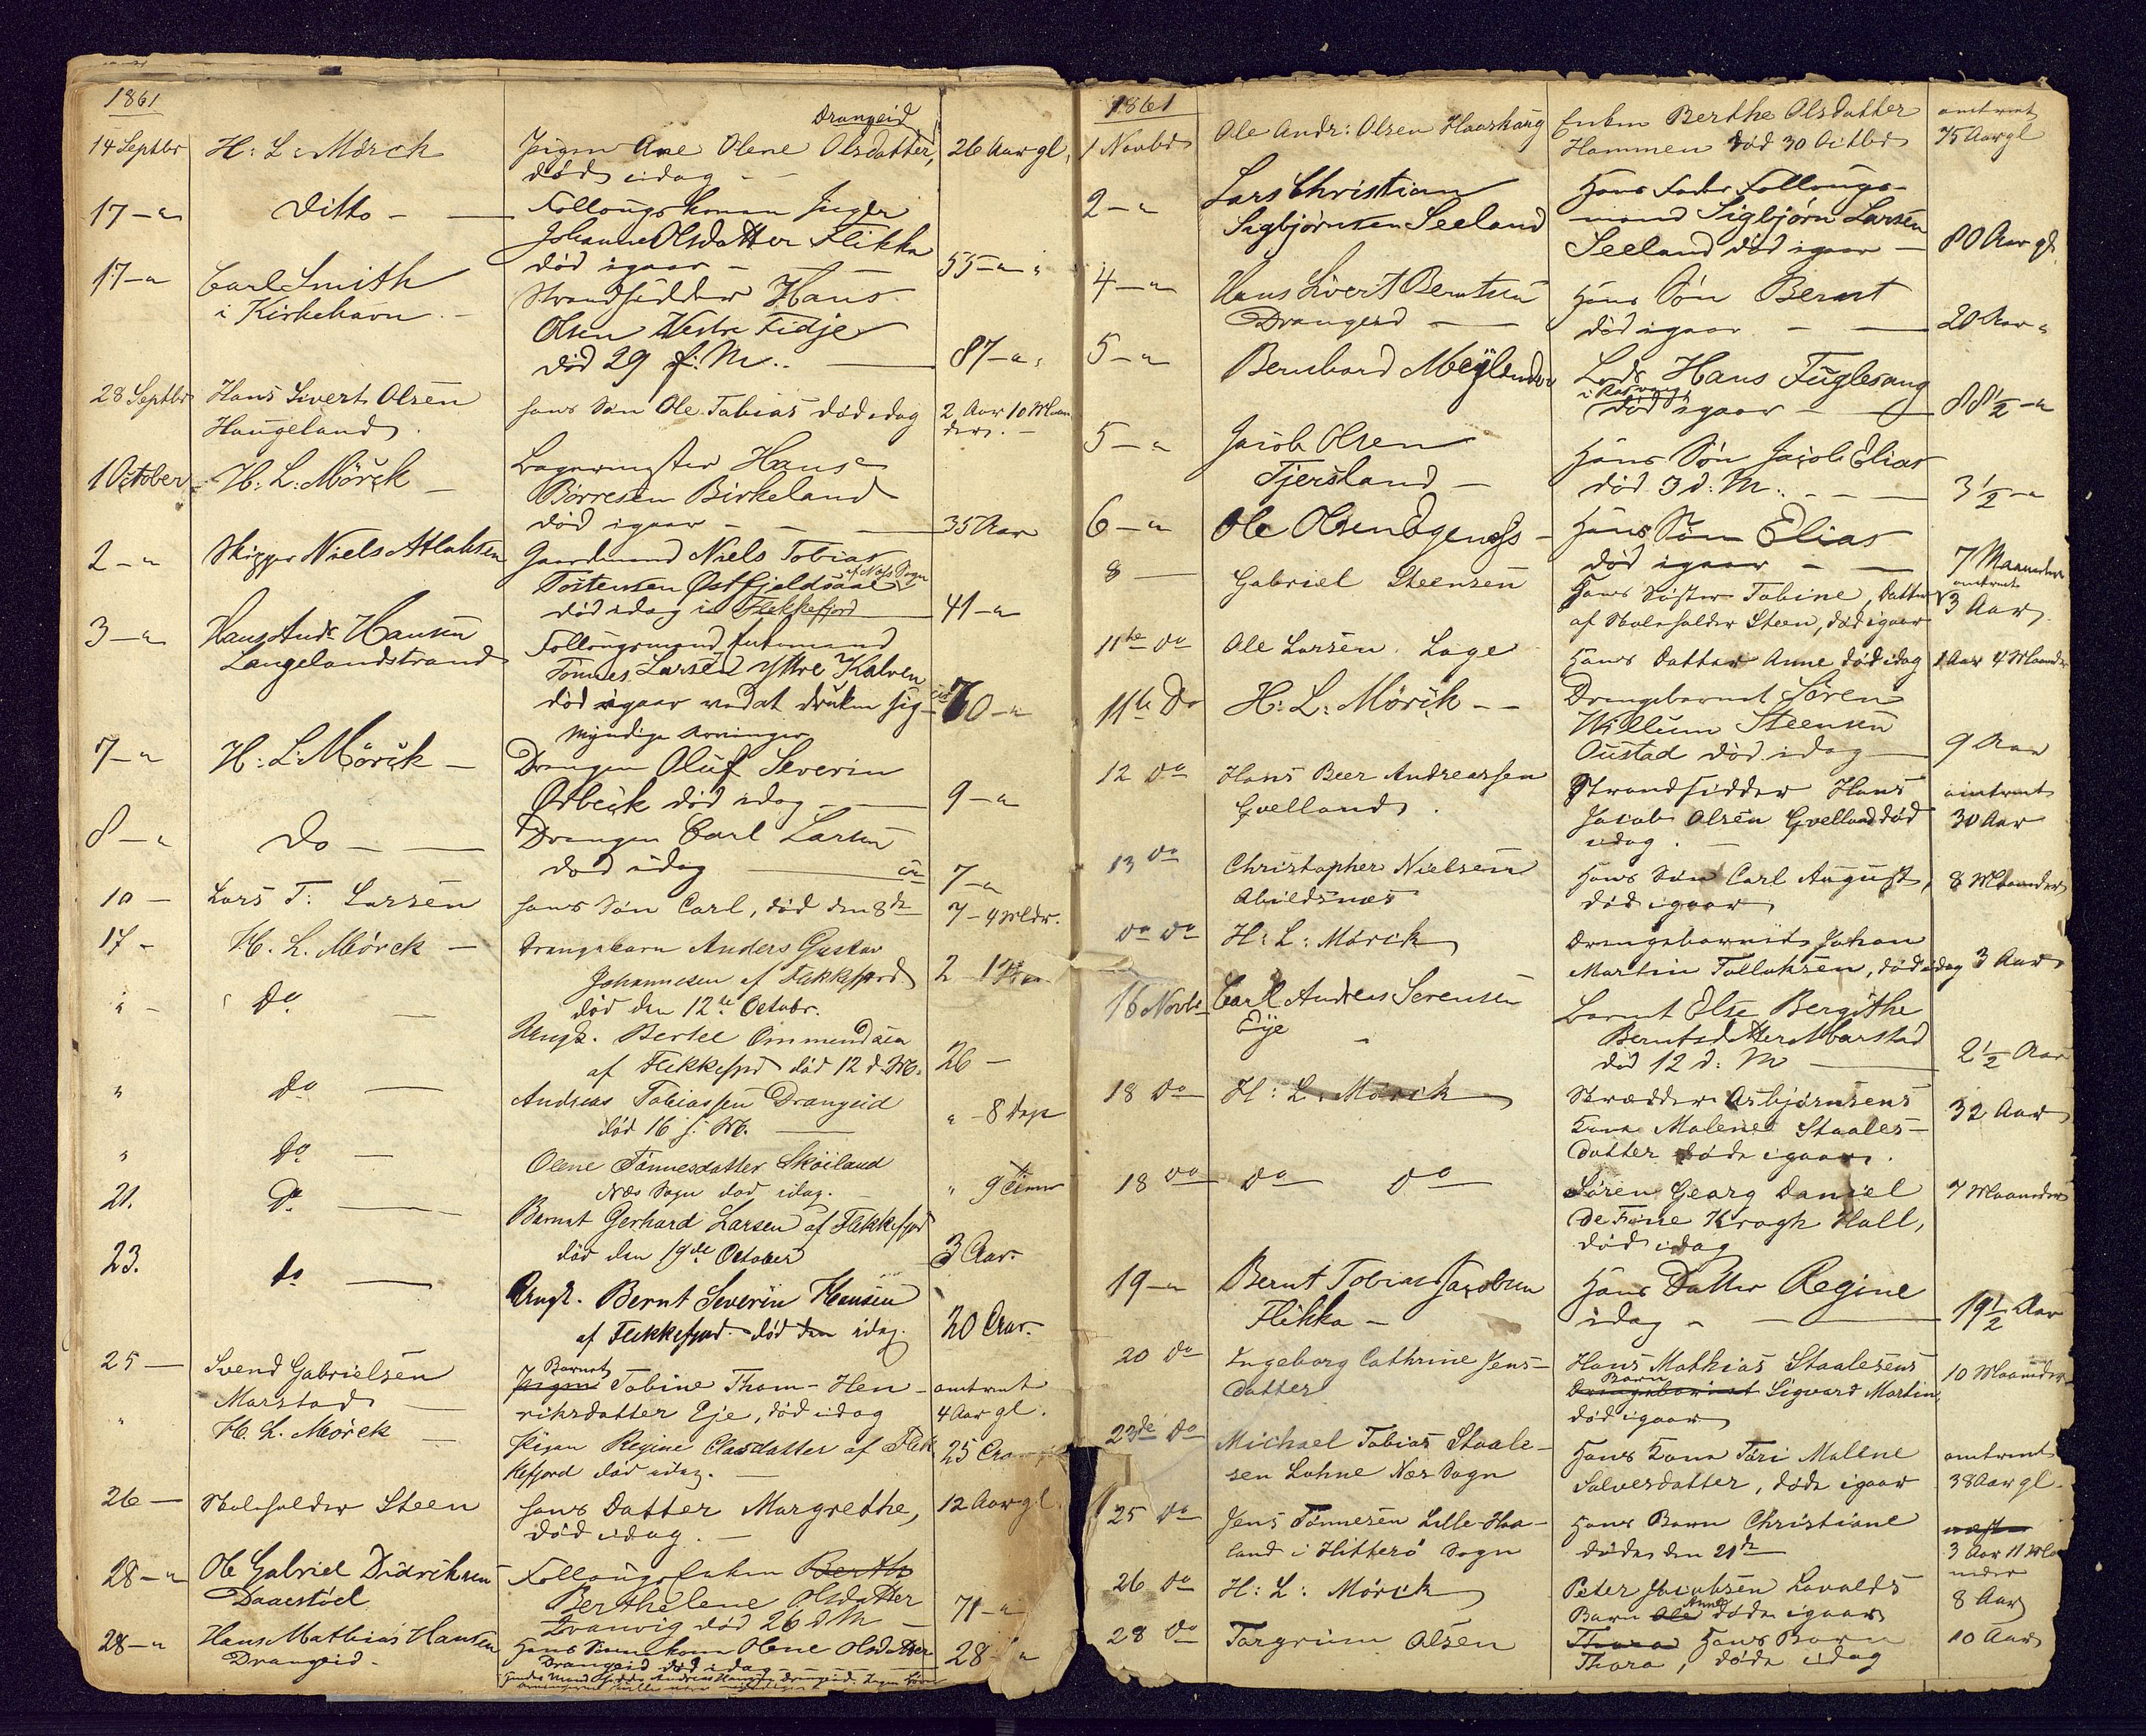 1861
Drangeid
14 Septbr H: L: Mørch Pigen Ane Olene Olsdatter, 26 Aar gl.
død idag -
17 - " Ditto - Follougskonen
Johanne Olsdatter Flikka
død igaar - 55 - "
17 - " Carl Smith Strandsidder Hans
i Kirkehavn. - Olsen Vestre Tidje
død 29 f: M.. 87 - "
28 Septbr Hans Sivert Olsen hans Søn Ole Tobias død idag 2 Aar 10 Maan
Haugeland. der. -
1 October H: L: Mørck - Bagermester Hans
Børresen Birkeland
død igaar - 35 Aar
2 - " Skipper Niels Atlaksen Gaardmand Niels Tobias
af Næs Sogn
Tostensen Østfjeldsaae
død idag i Flekkefjord 41 - "
3 - " Hans Andr Hansen Follougsmand Enkemand
Langelandstrand Tønnes Larsen Yttre Kalven
død igaar ved at drukne sig - 70 - "
Myndige Arvinger
7 - " H: L: Mørck - Drengen Oluf Severin
Ørbeck død idag - 9 - "
8 - " Do - Drengen Carl Larsen
død idag 7 - "
10 - Lars T: Larsen hans Søn Carl, død den 8de 7 - 4 Mdr.
17 - H. L. Mørck - Drengebarn Anders Gustav
Johannesen af Flekkefjord 2
død den 12te Octobr.
" - do - Ungk. Bertel Ommundsen
af Flekkefjord død 12 d. M. 26 -
" do - Andreas Tobiassen Drangeid
død 16 f: M. " - 8 dage
" do - Olene Tønnesdatter Skøiland
Næs Sogn død idag. - " 9 Timer
21. do - Barnet Gerhard Larsen af Flekkefjord
død den 19de October 3 Aar.
23. do - Ungk. Bernt Severin Hansen
af Flekkefjord. død den idag. 20 Aar.
25 - Svend Gabrielsen Barnet
Marstad - Pigen Tobine Thom- Hen- omtrent
riksdatter Eje, død idag 4 Aar gl.
" H. L. Mørck - Pigen Regine Clasdatter af Flek 25 Aar
kefjord død idag. -
26 - Skoleholder Steen hans Datter Margrethe, 12 Aar gl.
død idag. -
28 - " Ole Gabriel Didriksen Follougsenken Berthe
Daaestøel Berthelene Olsdatter
Tranvig død 26 d M - 71 - "
28 - " Hans Mathias Hansen Hans Olene Olsdatter
Drangeid. - Drangeid død idag 28 - "
1861
1 Novbr Ole Andr: Olsen Haashaug Enken Berthe Olsdatter omtrent
Hammen død 30 Octbr 75 Aar gl
2 - " Lars Christian Hans Fader Follougs-
Sigbjørnsen Seeland mand Sigbjørn Larsen
Seeland død igaar - 80 Aar gl.
4 - " Hans Sivert Berntsen Hans Søn Bernt
Drangeid - død igaar - 20 Aar "
5 - " Bernhard Meÿlænder Lods Hans Fuglesang
død igaar - 88½ - "
5 - " Jacob Olsen Hans Søn Jacob Elias
Tjersland - død 3 d: M. - 3½ - "
6 - " Ole Olsen Egenæss - Hans Søn Elias
død igaar - 7 Maaneder
8 - Gabriel Steensen Hans Søster Tobine, Datter omtrent
af Skoleholder Steen, død igaar 3 Aar
11te do Ole Larsen Lage Hans Datter Anne død idag 1 Aar 4 Maaneder
11te Do H: L: Mørck - - Drengebarnet Søren
Willum Steensen
Oustad død idag - 9 Aar
12 do Hans Beer Andreassen Strandsidder Hans omtrent
Gvelland. Jacob Olsen Gvelland død 30 Aar
idag. -
13 do Christopher Nielsen Hans Søn Carl August, 8 Maaneder
Abildsnæs død igaar
do do H: L: Mørck Drengebarnet Johan
Martin Tollaksen, død idag 3 Aar
16 Novbr Carl Andreas Sørensen Barnet Else Bergithe
Eÿe - Berntsdatter Marstad
død 12 d: M - 2½ Aar
18 do H: L: Mørck Skrædder Asbjørnsens 32 Aar
Kone Malene Staales-
datter døde igaar.
18 do do do Søren Georg Daniel 7 Maaneder
De Fine Krogh Hall,
død idag
19 - " Bernt Tobias Jacobsen Hans Datter Regine
Flikka - idag - 19½ Aar
20 do Ingeborg Cathrine Jens- Hans Mathias Staalesens 10 Maaneder
datter Barn
Drengebarnet Sigvard Martin,
død igaar
23de do Michael Tobias Staale- Hans Kone Tøri Malene omtrent
sen Lohne Næs Sogn Salvesdatter, døde igaar 38 Aar gl.
25 do Jens Tønnesen Lille-Haa- Hans Barn Christiane næsten
land i Hitterø Sogn døde den 21de 3 Aar 11 Maa
neder
26 do H: L: Mørck Peter Jacobsen Lavolds 8 Aar
Anne
Barn Ole døde igaar
28 do Torgrim Olsen Thora Hans Barn 10 Aar
Thora, døde idag